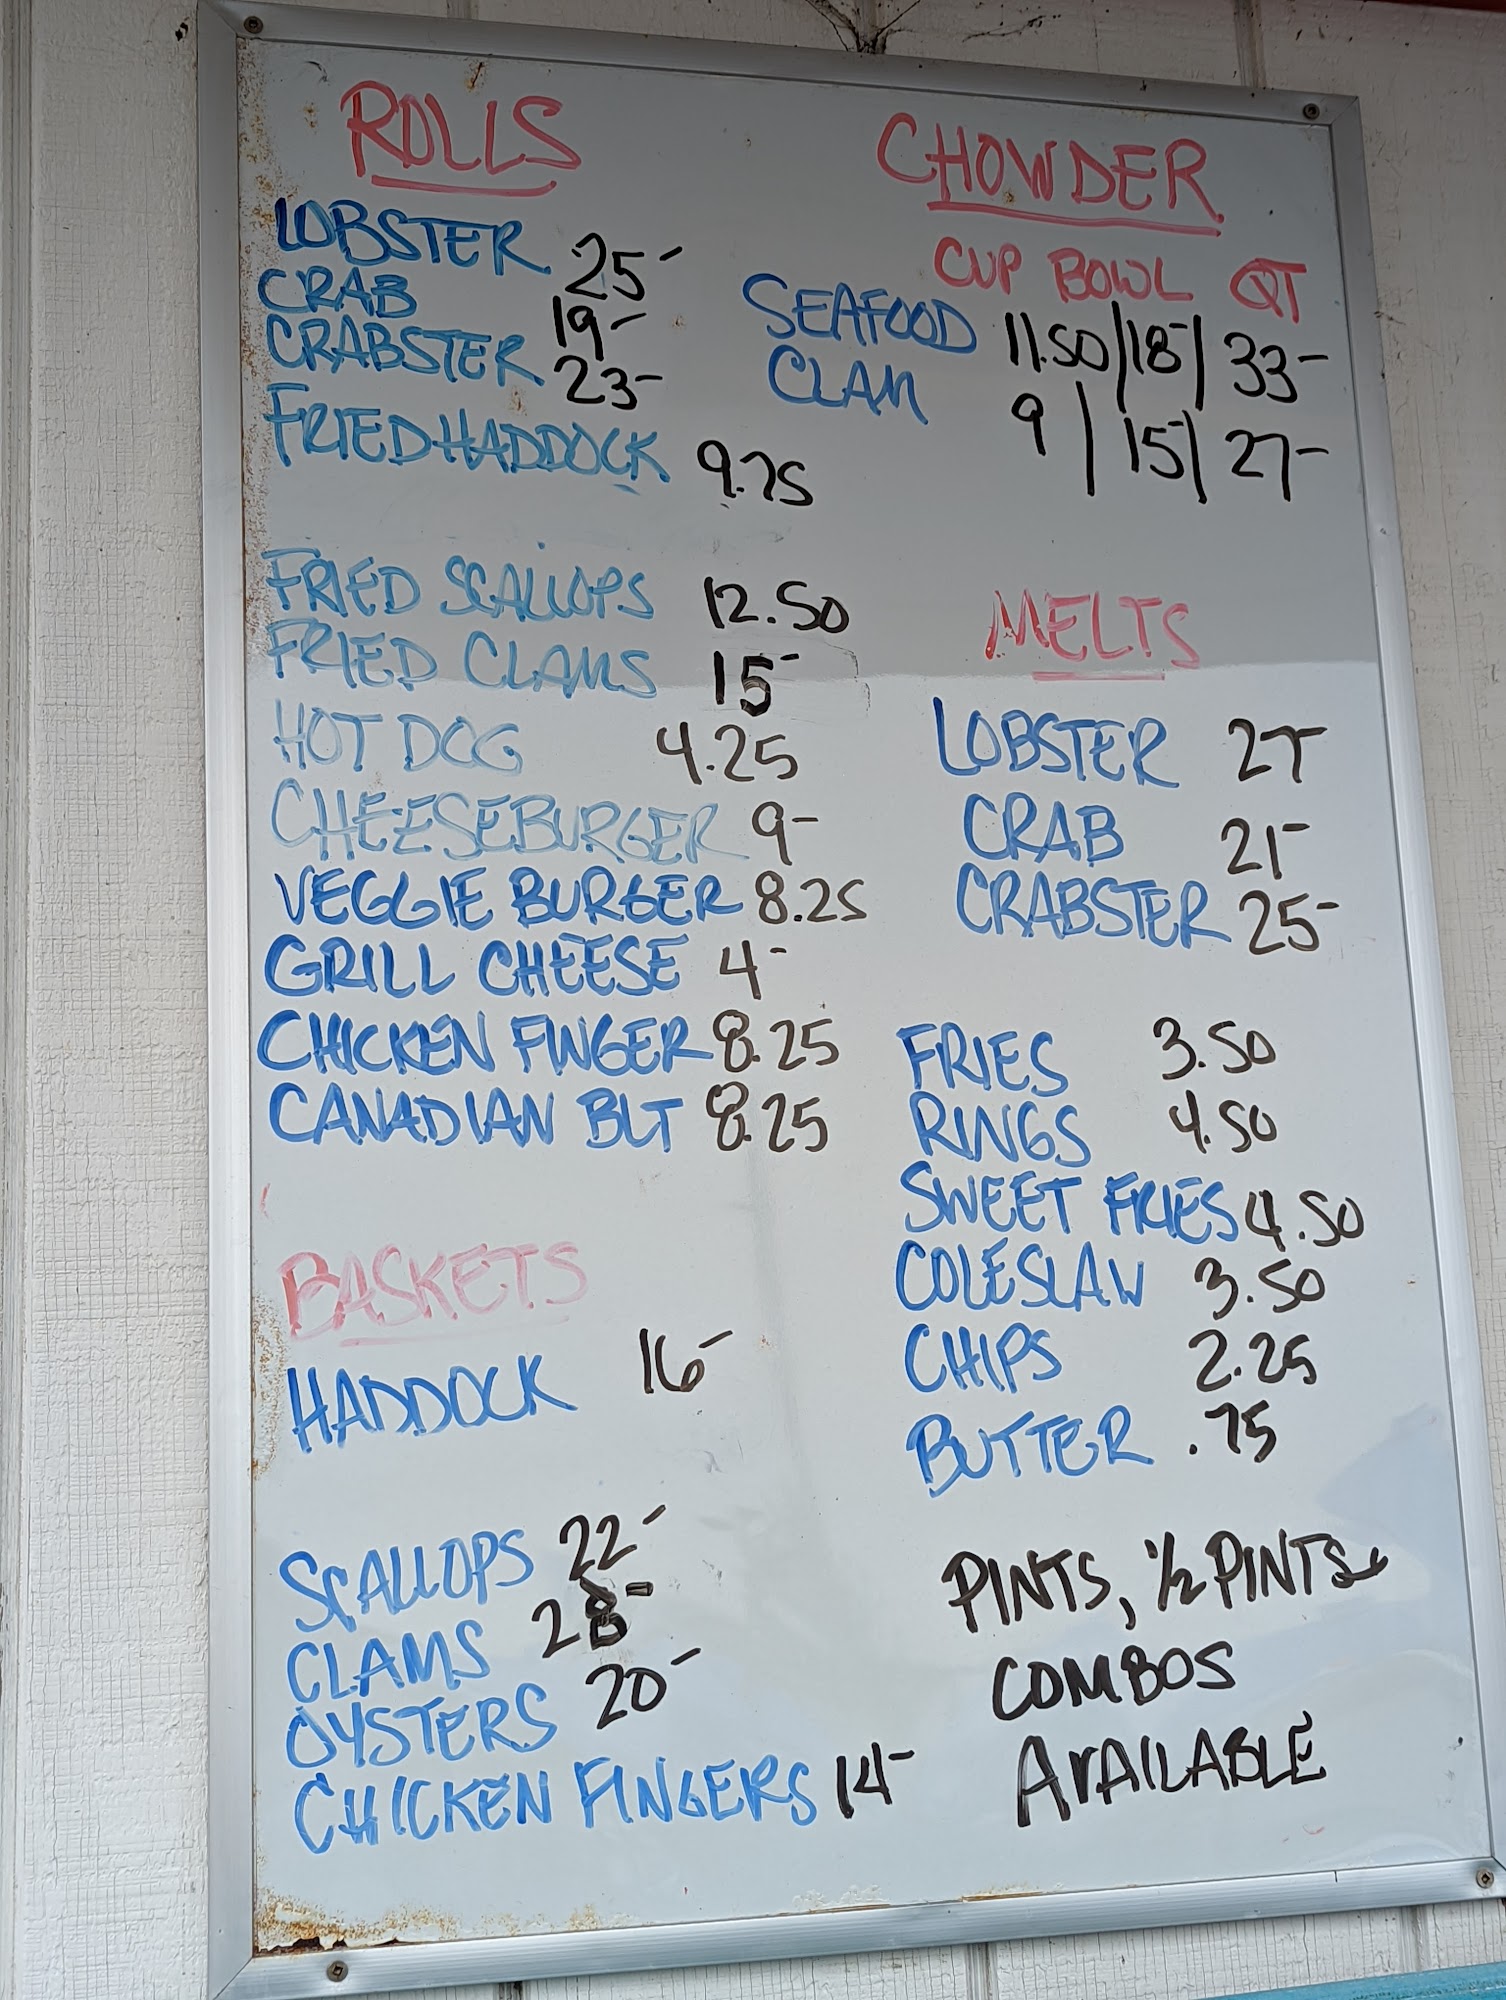 ROLLS
LOBSTER 25-
CRAB 19-
CRABSTER 23-
FRIED HADDOCK 9.75
FRIED SCALLOPS 12.50
FRIED CLAMS 15-
HOT DOG 4.25
CHEESEBURGER 9-
VEGGIE BURGER 8.25
GRILL CHEESE 4-
CHICKEN FINGER 8.25
CANADIAN BLT 8.25
BASKETS
HADDOCK 16-
SCALLOPS 22-
CLAMS 28-
OYSTERS 20-
CHICKEN FINGERS 14-
CHOWDER
CUP BOWL QT
SEAFOOD 11.50/18-/33-
CLAM 9/15-/27-
MELTS
LOBSTER 27-
CRAB 21-
CRABSTER 25-
FRIES 3.50
RINGS 4.50
SWEET FRIES 4.50
COLESLAW 3.50
CHIPS 2.25
BUTTER .75
PINTS, 1/2 PINTS
COMBOS
AVAILABLE